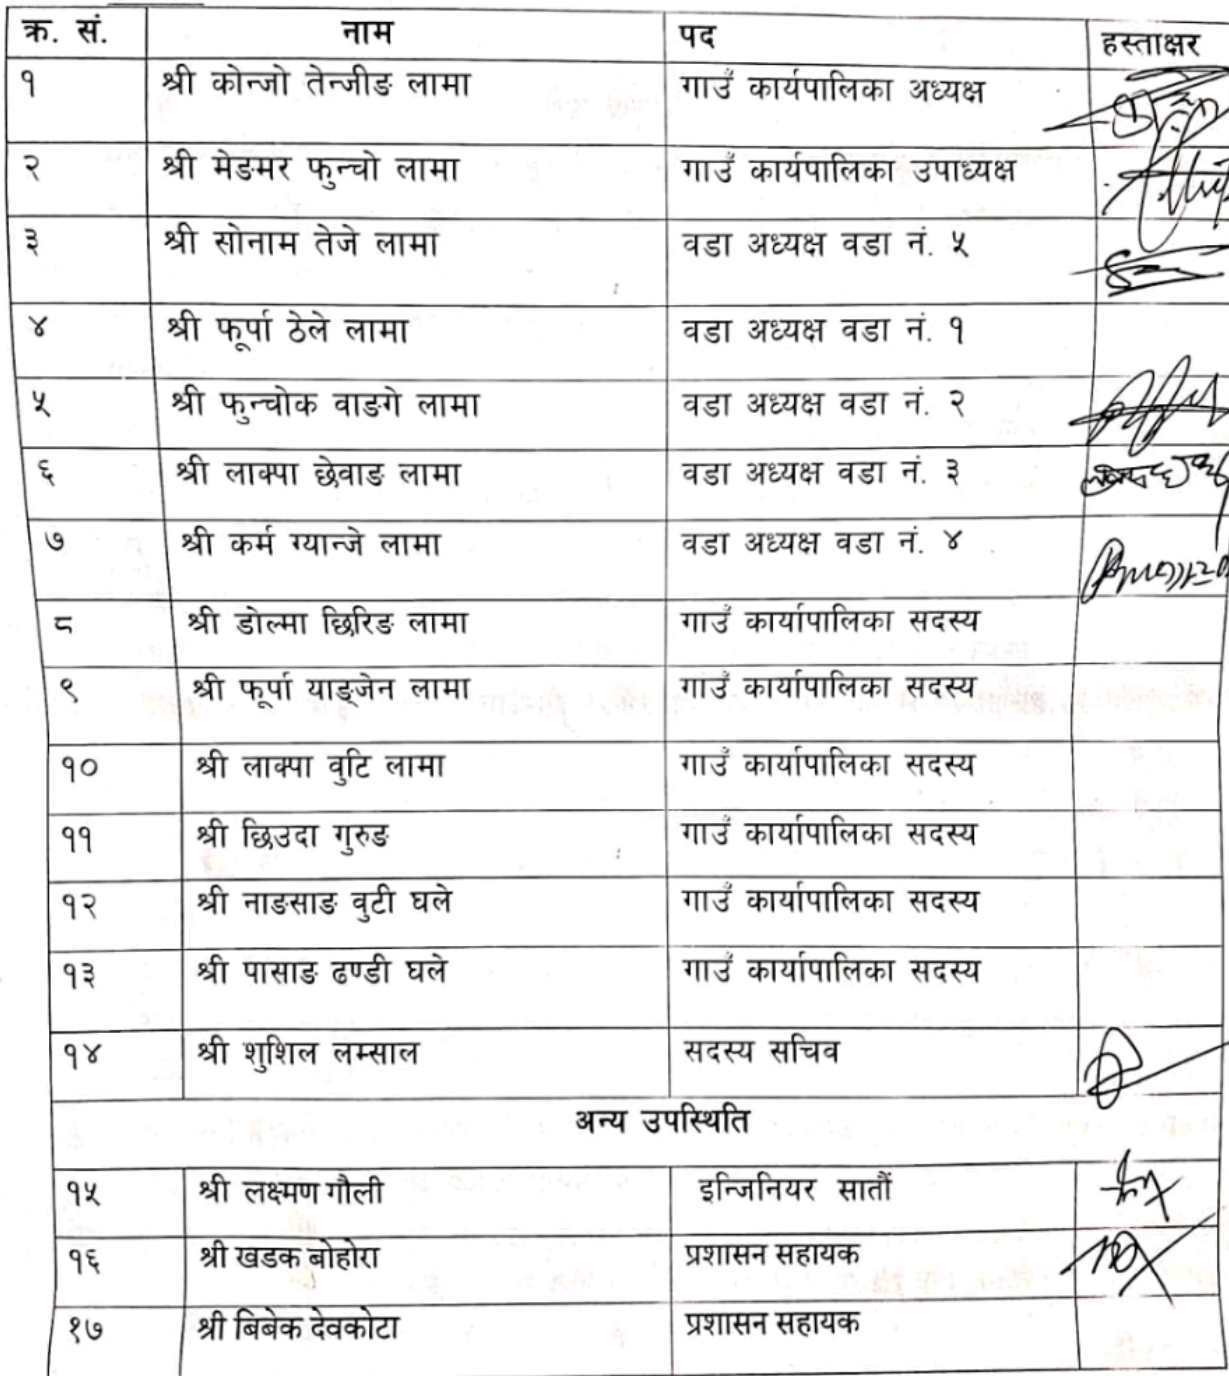 क्र. सं. नाम पद हस्ताक्षर
१ श्री कोन्जो तेन्जीङ लामा गाउँ कार्यपालिका अध्यक्ष
२ श्री मेङमर फुन्चो लामा गाउँ कार्यपालिका उपाध्यक्ष
३ श्री सोनाम तेजे लामा वडा अध्यक्ष वडा नं. ५
४ श्री फूर्पा ठेले लामा वडा अध्यक्ष वडा नं. १
५ श्री फुन्चोक वाङगे लामा वडा अध्यक्ष वडा नं. २
६ श्री लाक्पा छेवाङ लामा वडा अध्यक्ष वडा नं. ३
७ श्री कर्म ग्यान्जे लामा वडा अध्यक्ष वडा नं. ४
८ श्री डोल्मा छिरिङ लामा गाउँ कार्यापालिका सदस्य
९ श्री फूर्पा याङ्जेन लामा गाउँ कार्यापालिका सदस्य
१० श्री लाक्पा वुटि लामा गाउँ कार्यापालिका सदस्य
११ श्री छिउदा गुरुङ गाउँ कार्यापालिका सदस्य
१२ श्री नाङसाङ वुटी घले गाउँ कार्यापालिका सदस्य
१३ श्री पासाङ ढण्डी घले गाउँ कार्यापालिका सदस्य
१४ श्री शुशिल लम्साल सदस्य सचिव
अन्य उपस्थिति
१५ श्री लक्ष्मण गौली इन्जिनियर सातौं
१६ श्री खडक बोहोरा प्रशासन सहायक
१७ श्री बिबेक देवकोटा प्रशासन सहायक